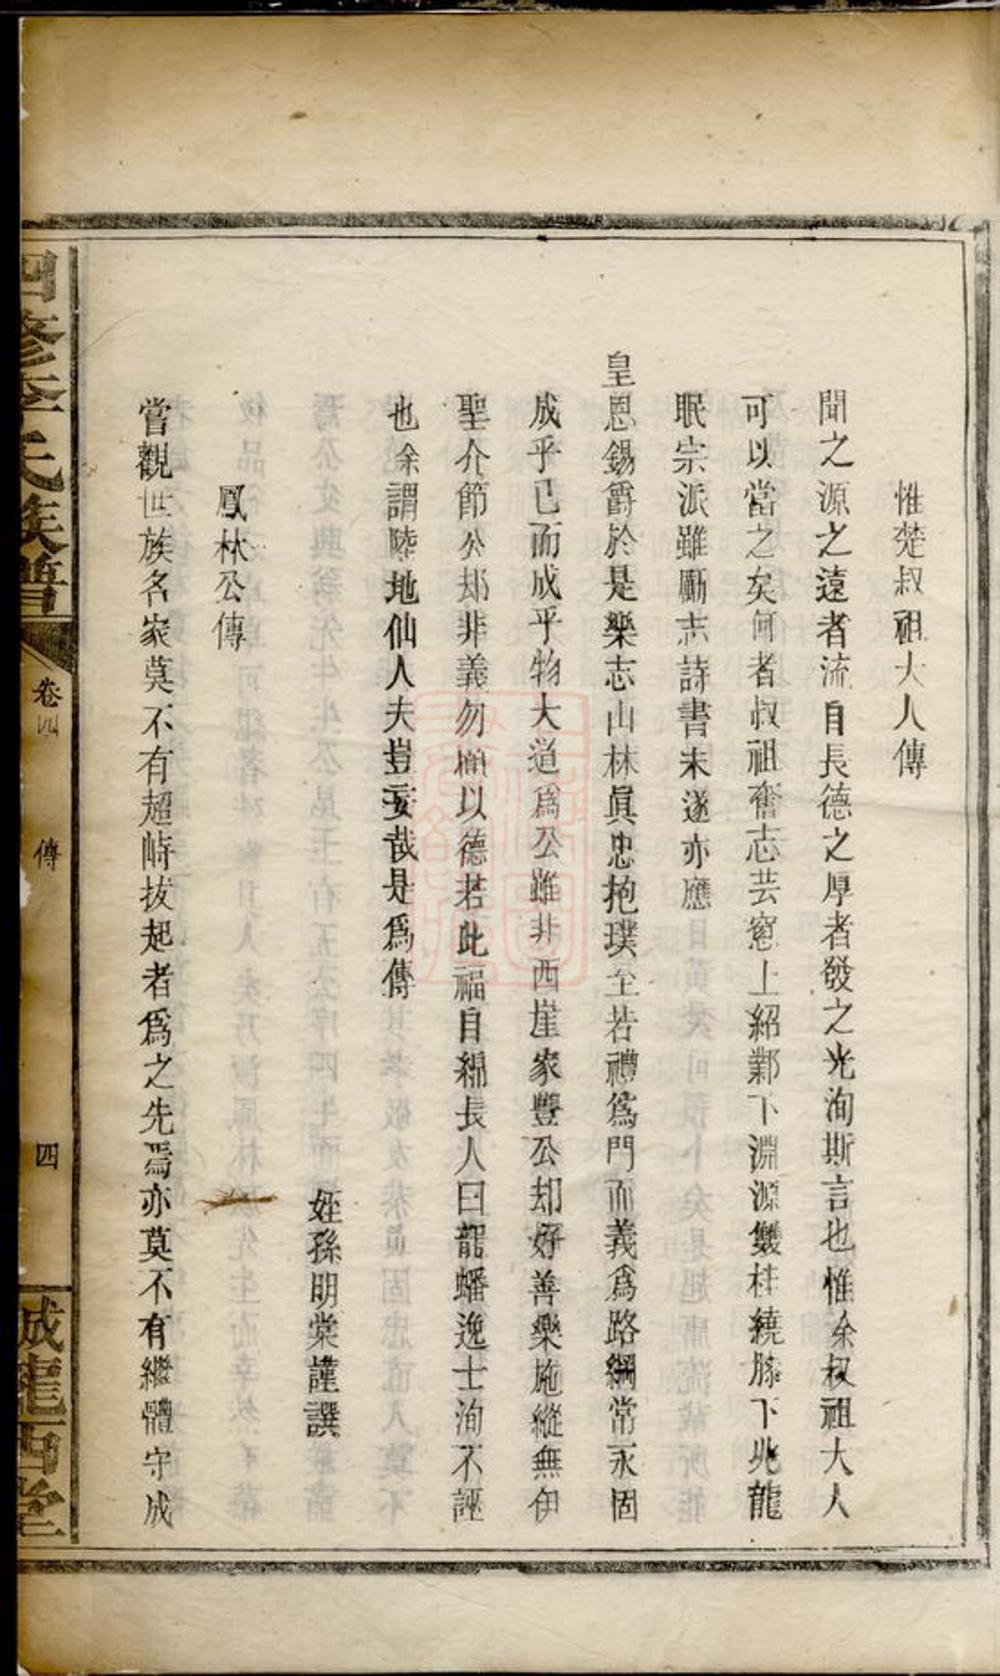 惟楚叔祖大人傳
聞之源之遠者流自長德之厚者發之光洵斯言也惟余叔祖大人
可以當之矣何者叔祖奮志芸窻上紹鄴下淵源雙桂繞膝下兆龍
眠宗派雖勵志詩書未遂亦應
皇恩錫爵於是樂志山林眞忠抱璞至若禮爲門而義爲路綱常永固
成乎已而成乎物大道爲公雖非西崖家豐公却好善樂施縱無伊
聖介節公却非義勿顧以德若此福自緜長人曰龍蟠逸士洵不誣
也余謂陸地仙人夫豈妄哉是爲傳
姪孫明棠謹譔
鳳林公傳
嘗觀世族名家莫不有超峙拔起者爲之先焉亦莫不有繼體守成
四修李氏族譜
卷四
傳
四